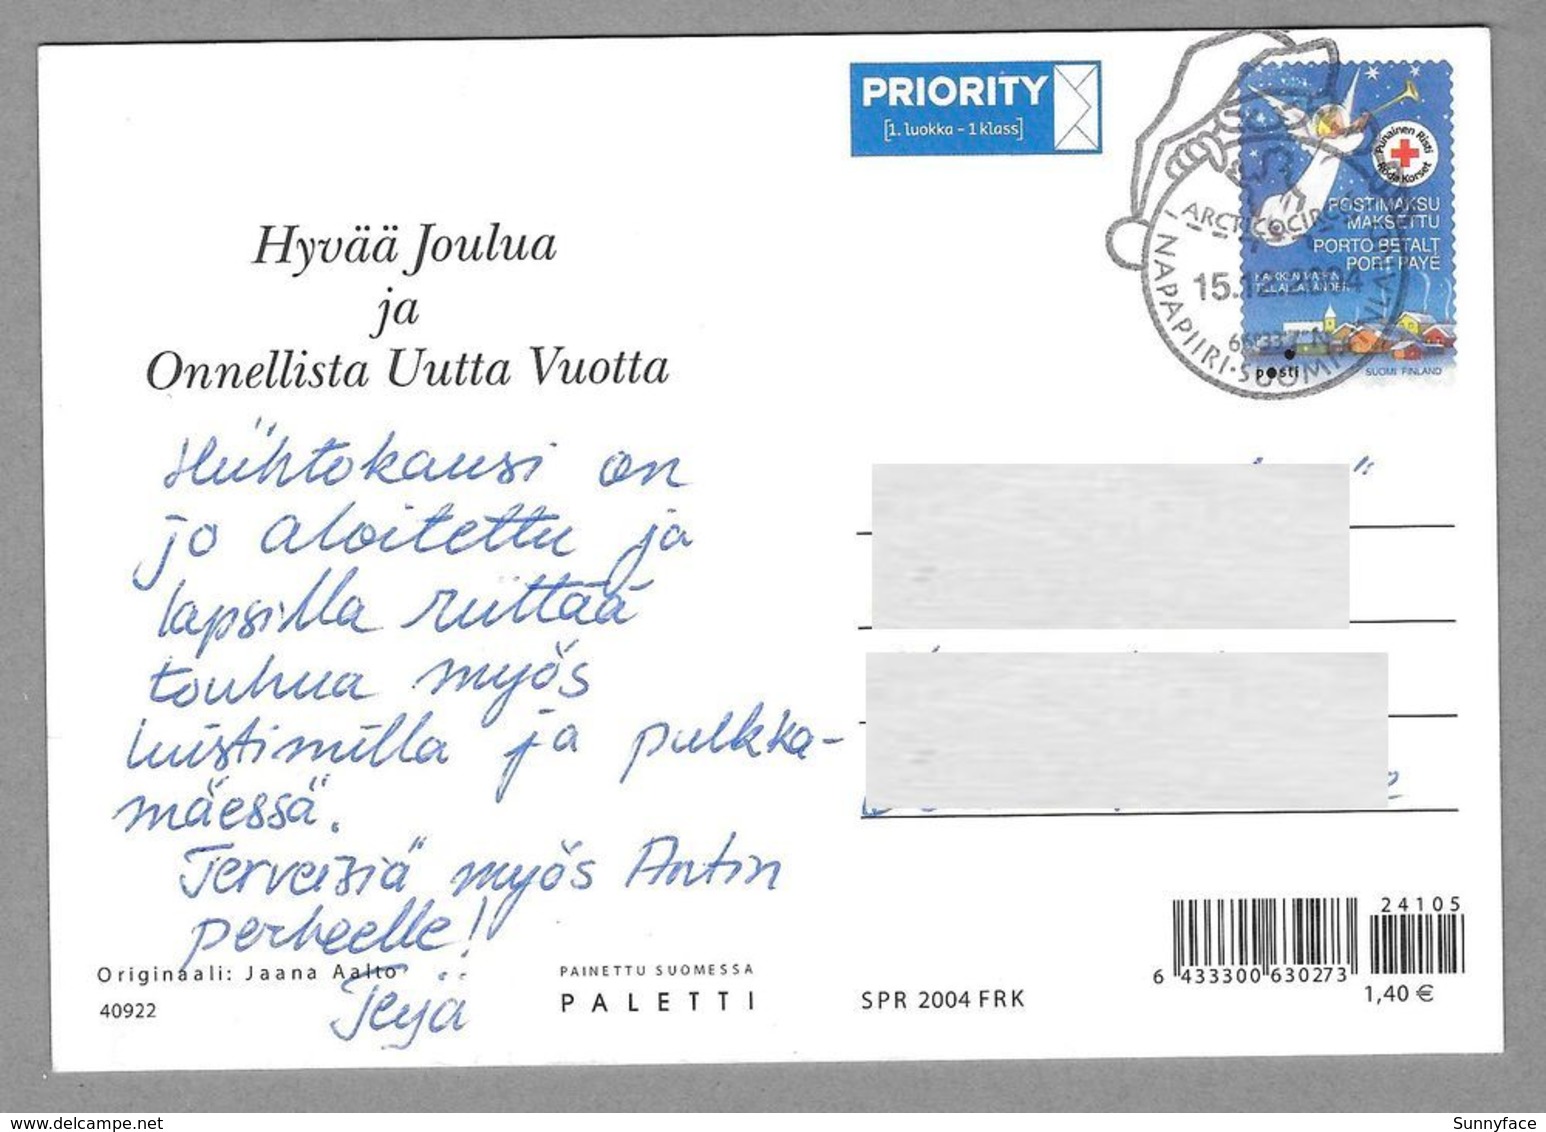 PRIORITY
[1. luokka – 1 klass]
Punainen Risti
Röda Korset
POSTIMAKSU
MAKSETTU
PORTO BETALT
PORT PAYÉ
KAIKKIIN MAIHIN
TILL ALLA LÄNDER
posti
SUOMI FINLAND
ARCTIC CIRCLE
15.12.2004
NAPAPIIRI · SUOMI FINLAND
Hyvää Joulua
ja
Onnellista Uutta Vuotta
Hiihtokausi on
jo aloitettu ja
lapsilla riittää
touhua myös
luistimilla ja pulkka-
mäessä.
Terveisiä myös Antin
perheelle!
Teija
Originaali: Jaana Aalto
40922
PAINETTU SUOMESSA
PALETTI
SPR 2004 FRK
24105
6 433300 630273
1,40 €
Sunnyface